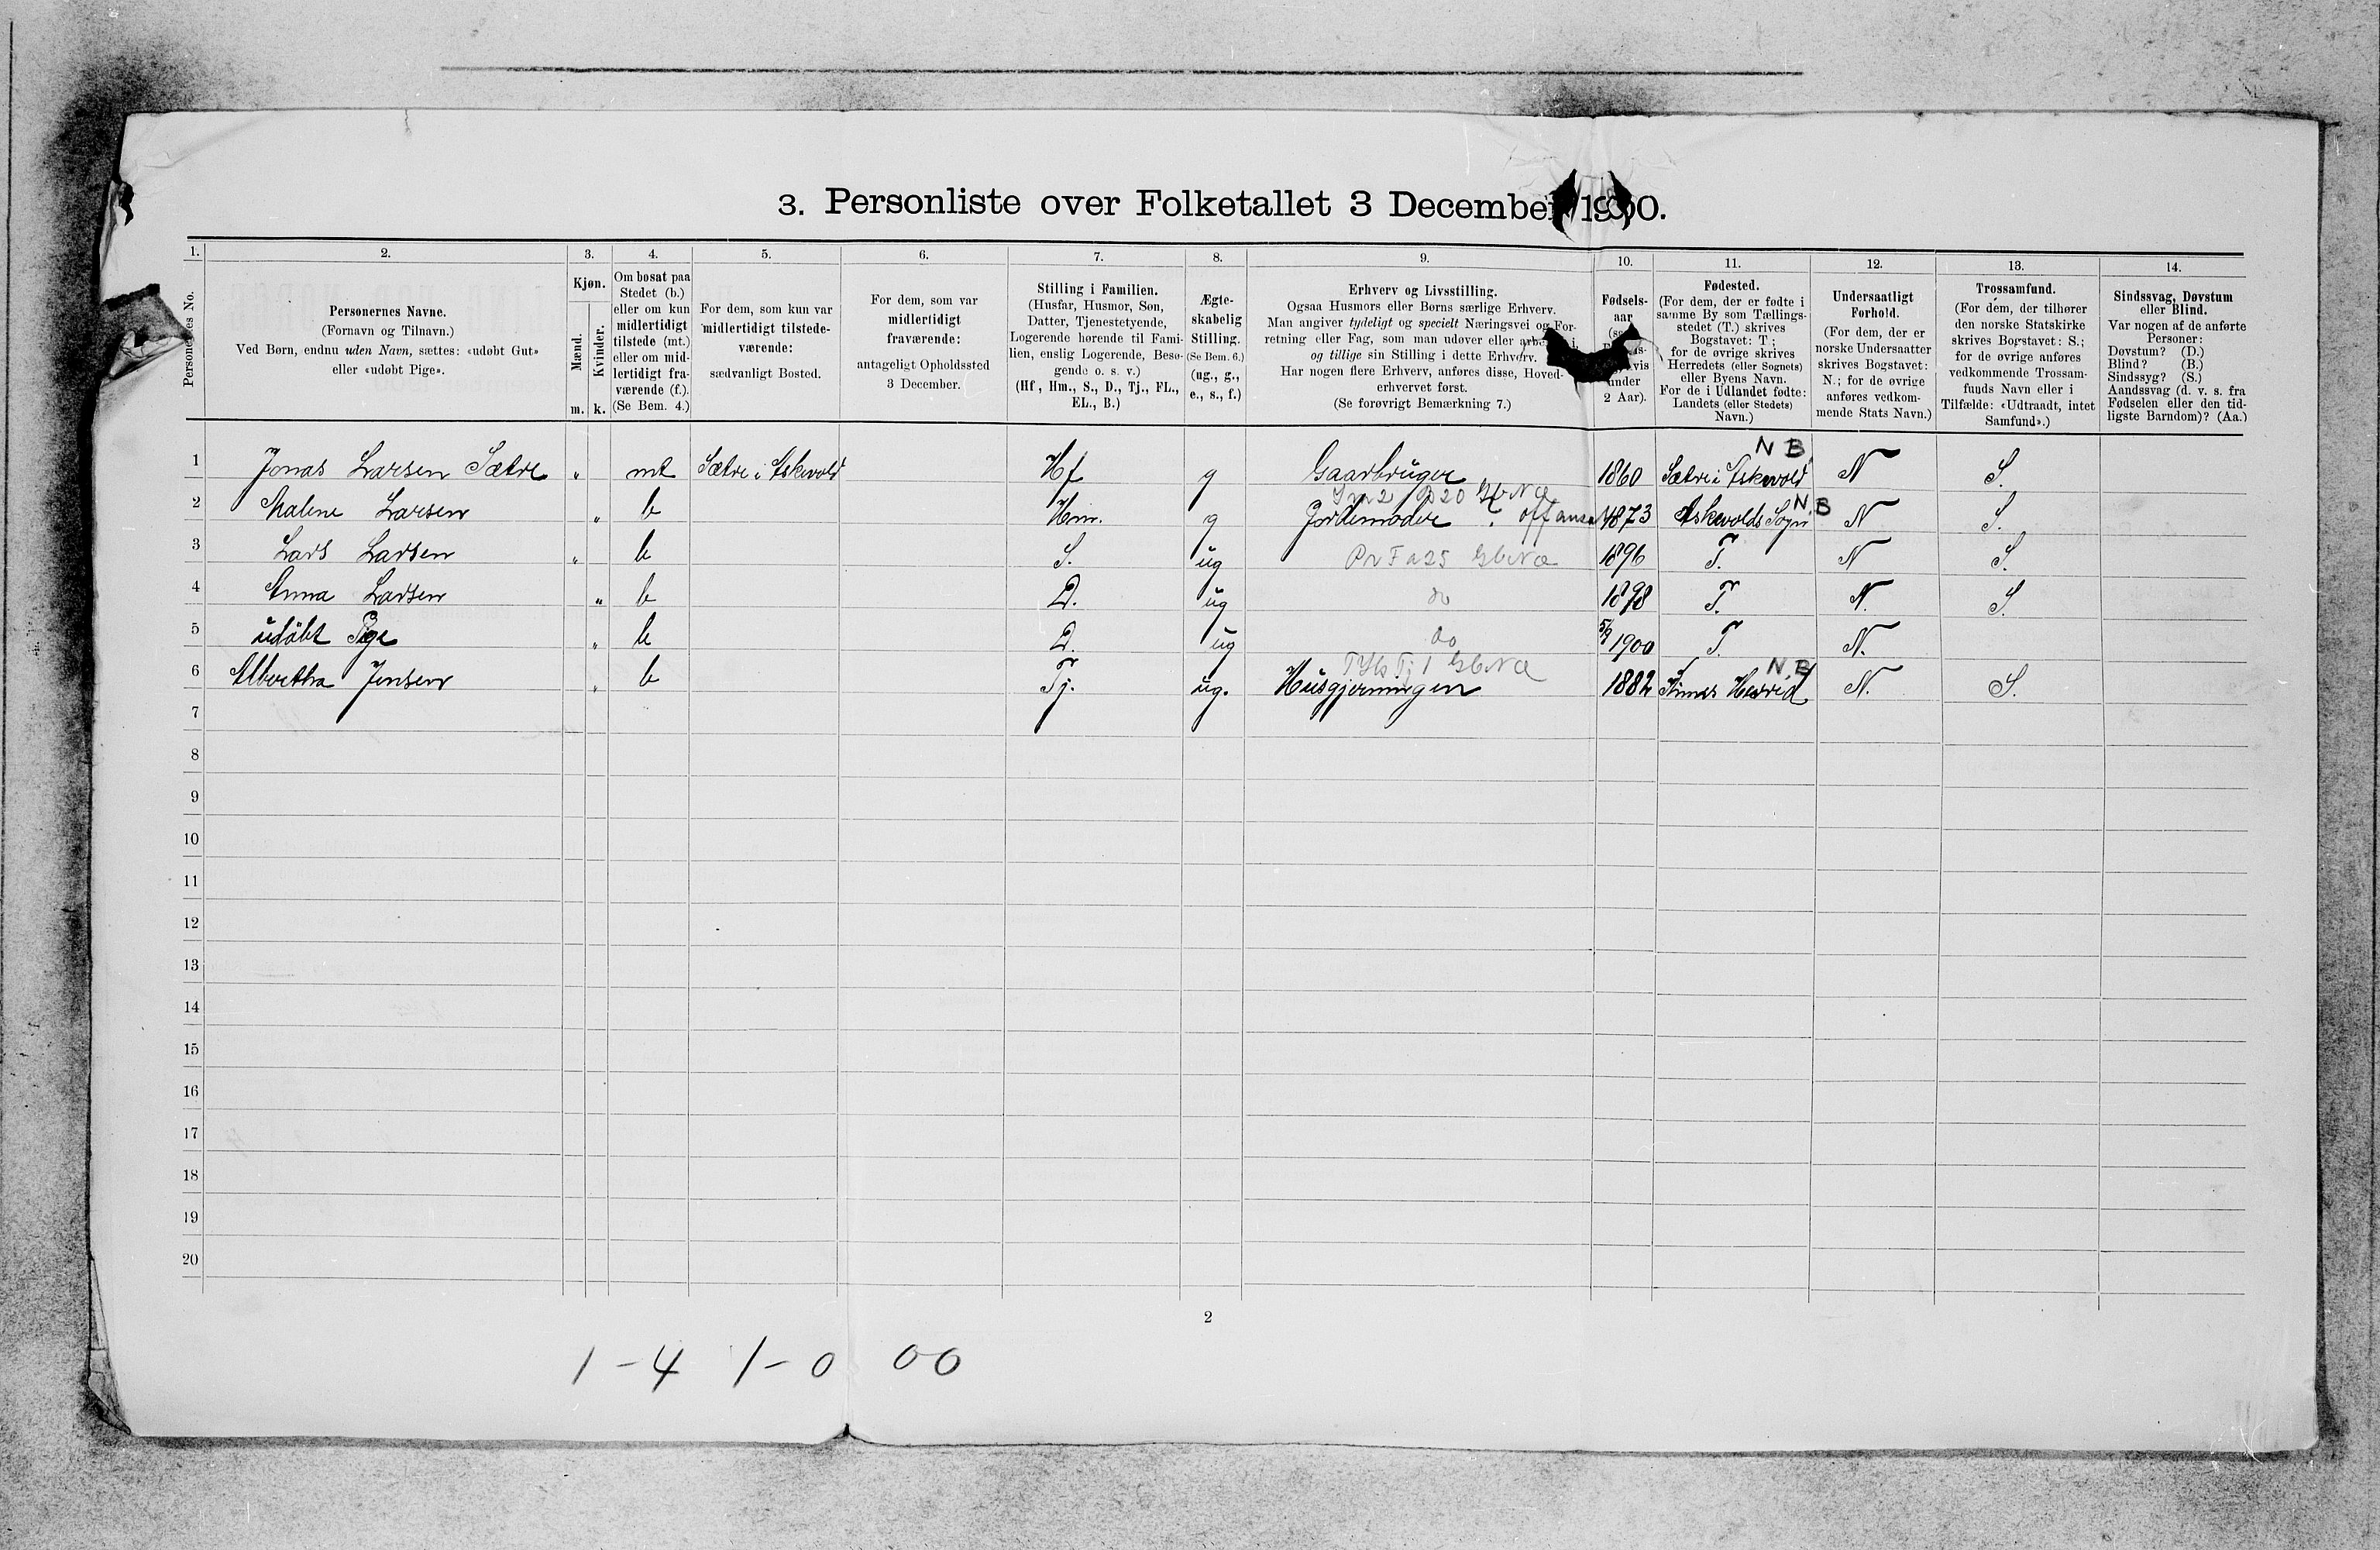 3. Personliste over Folketallet 3 December 1900.
1. 2. 3. 4. 5. 6. 7. 8. 9. 10. 11. 12. 13. 14.
Personernes No.
Personernes Navne.
(Fornavn og Tilnavn.)
Ved Børn, endnu uden Navn, sættes: «udøbt Gut»
eller «udøbt Pige».
Kjøn.
Mænd.
Kvinder.
m. k.
Om bosat paa
Stedet (b.)
eller om kun
midlertidigt
tilstede (mt.)
eller om mid-
lertidigt fra-
værende (f.).
(Se Bem. 4.)
For dem, som kun var
midlertidigt tilstede-
værende:
sædvanligt Bosted.
For dem, som var
midlertidigt
fraværende:
antageligt Opholdssted
3 December.
Stilling i Familien.
(Husfar, Husmor, Søn,
Datter, Tjenestetyende,
Logerende hørende til Fami-
lien, enslig Logerende, Besø-
gende o. s. v.)
(Hf., Hm., S., D., Tj., FL.,
EL., B.)
Ægte-
skabelig
Stilling.
(Se Bem. 6.)
(ug., g.,
e., s., f.)
Erhverv og Livsstilling.
Ogsaa Husmors eller Børns særlige Erhverv.
Man angiver tydeligt og specielt Næringsvei og For-
retning eller Fag, som man udøver eller arbe i,
og tillige sin Stilling i dette Erhverv.
Har nogen flere Erhverv, anføres disse, Hoved-
erhvervet først.
(Se forøvrigt Bemærkning 7.)
Fødsels-
aar
under
2 Aar).
Fødested.
(For dem, der er fødte i
samme By som Tællings-
stedet (T.) skrives
Bogstavet: T;
for de øvrige skrives
Herredets (eller Sognets)
eller Byens Navn.
For de i Udlandet fødte:
Landets (eller Stedets)
Navn.)
Undersaatligt
Forhold.
(For dem, der er
norske Undersaatter
skrives Bogstavet:
N.; for de øvrige
anføres vedkom-
mende Stats Navn.)
Trossamfund.
(For dem, der tilhører
den norske Statskirke
skrives Bogstavet: S.;
for de øvrige anføres
vedkommende Trossam-
funds Navn eller i
Tilfælde: «Udtraadt, intet
Samfund».)
Sindssvag, Døvstum
eller Blind.
Var nogen af de anførte
Personer:
Døvstum? (D.)
Blind? (B.)
Sindssyg? (S.)
Aandssvag (d. v. s. fra
Fødselen eller den tid-
ligste Barndom)? (Aa.)
N B
1 Jonas Larsen Sætre " mt Sætre i Askevold Hf g Gaarbruger 1860 Sætre i Askevold N S.
N B
2 Malene Larsen " b Hm. g Jordemoder 1873 Askevolds Sogn N S.
3 Lars Larsen " b S. ug 1896 T. N S.
4 Anna Larsen " b D. ug do 1898 T. N. S.
5 udøbt Pige " b D. ug do 5/9 1900 T. N.
N B
6 Albertha Jensen " b Tj. ug. Husgjerningen 1882 Kinns Herred N. S.
7
8
9
10
11
12
13
14
15
16
17
18
19
20
2
1-4 1-0 00